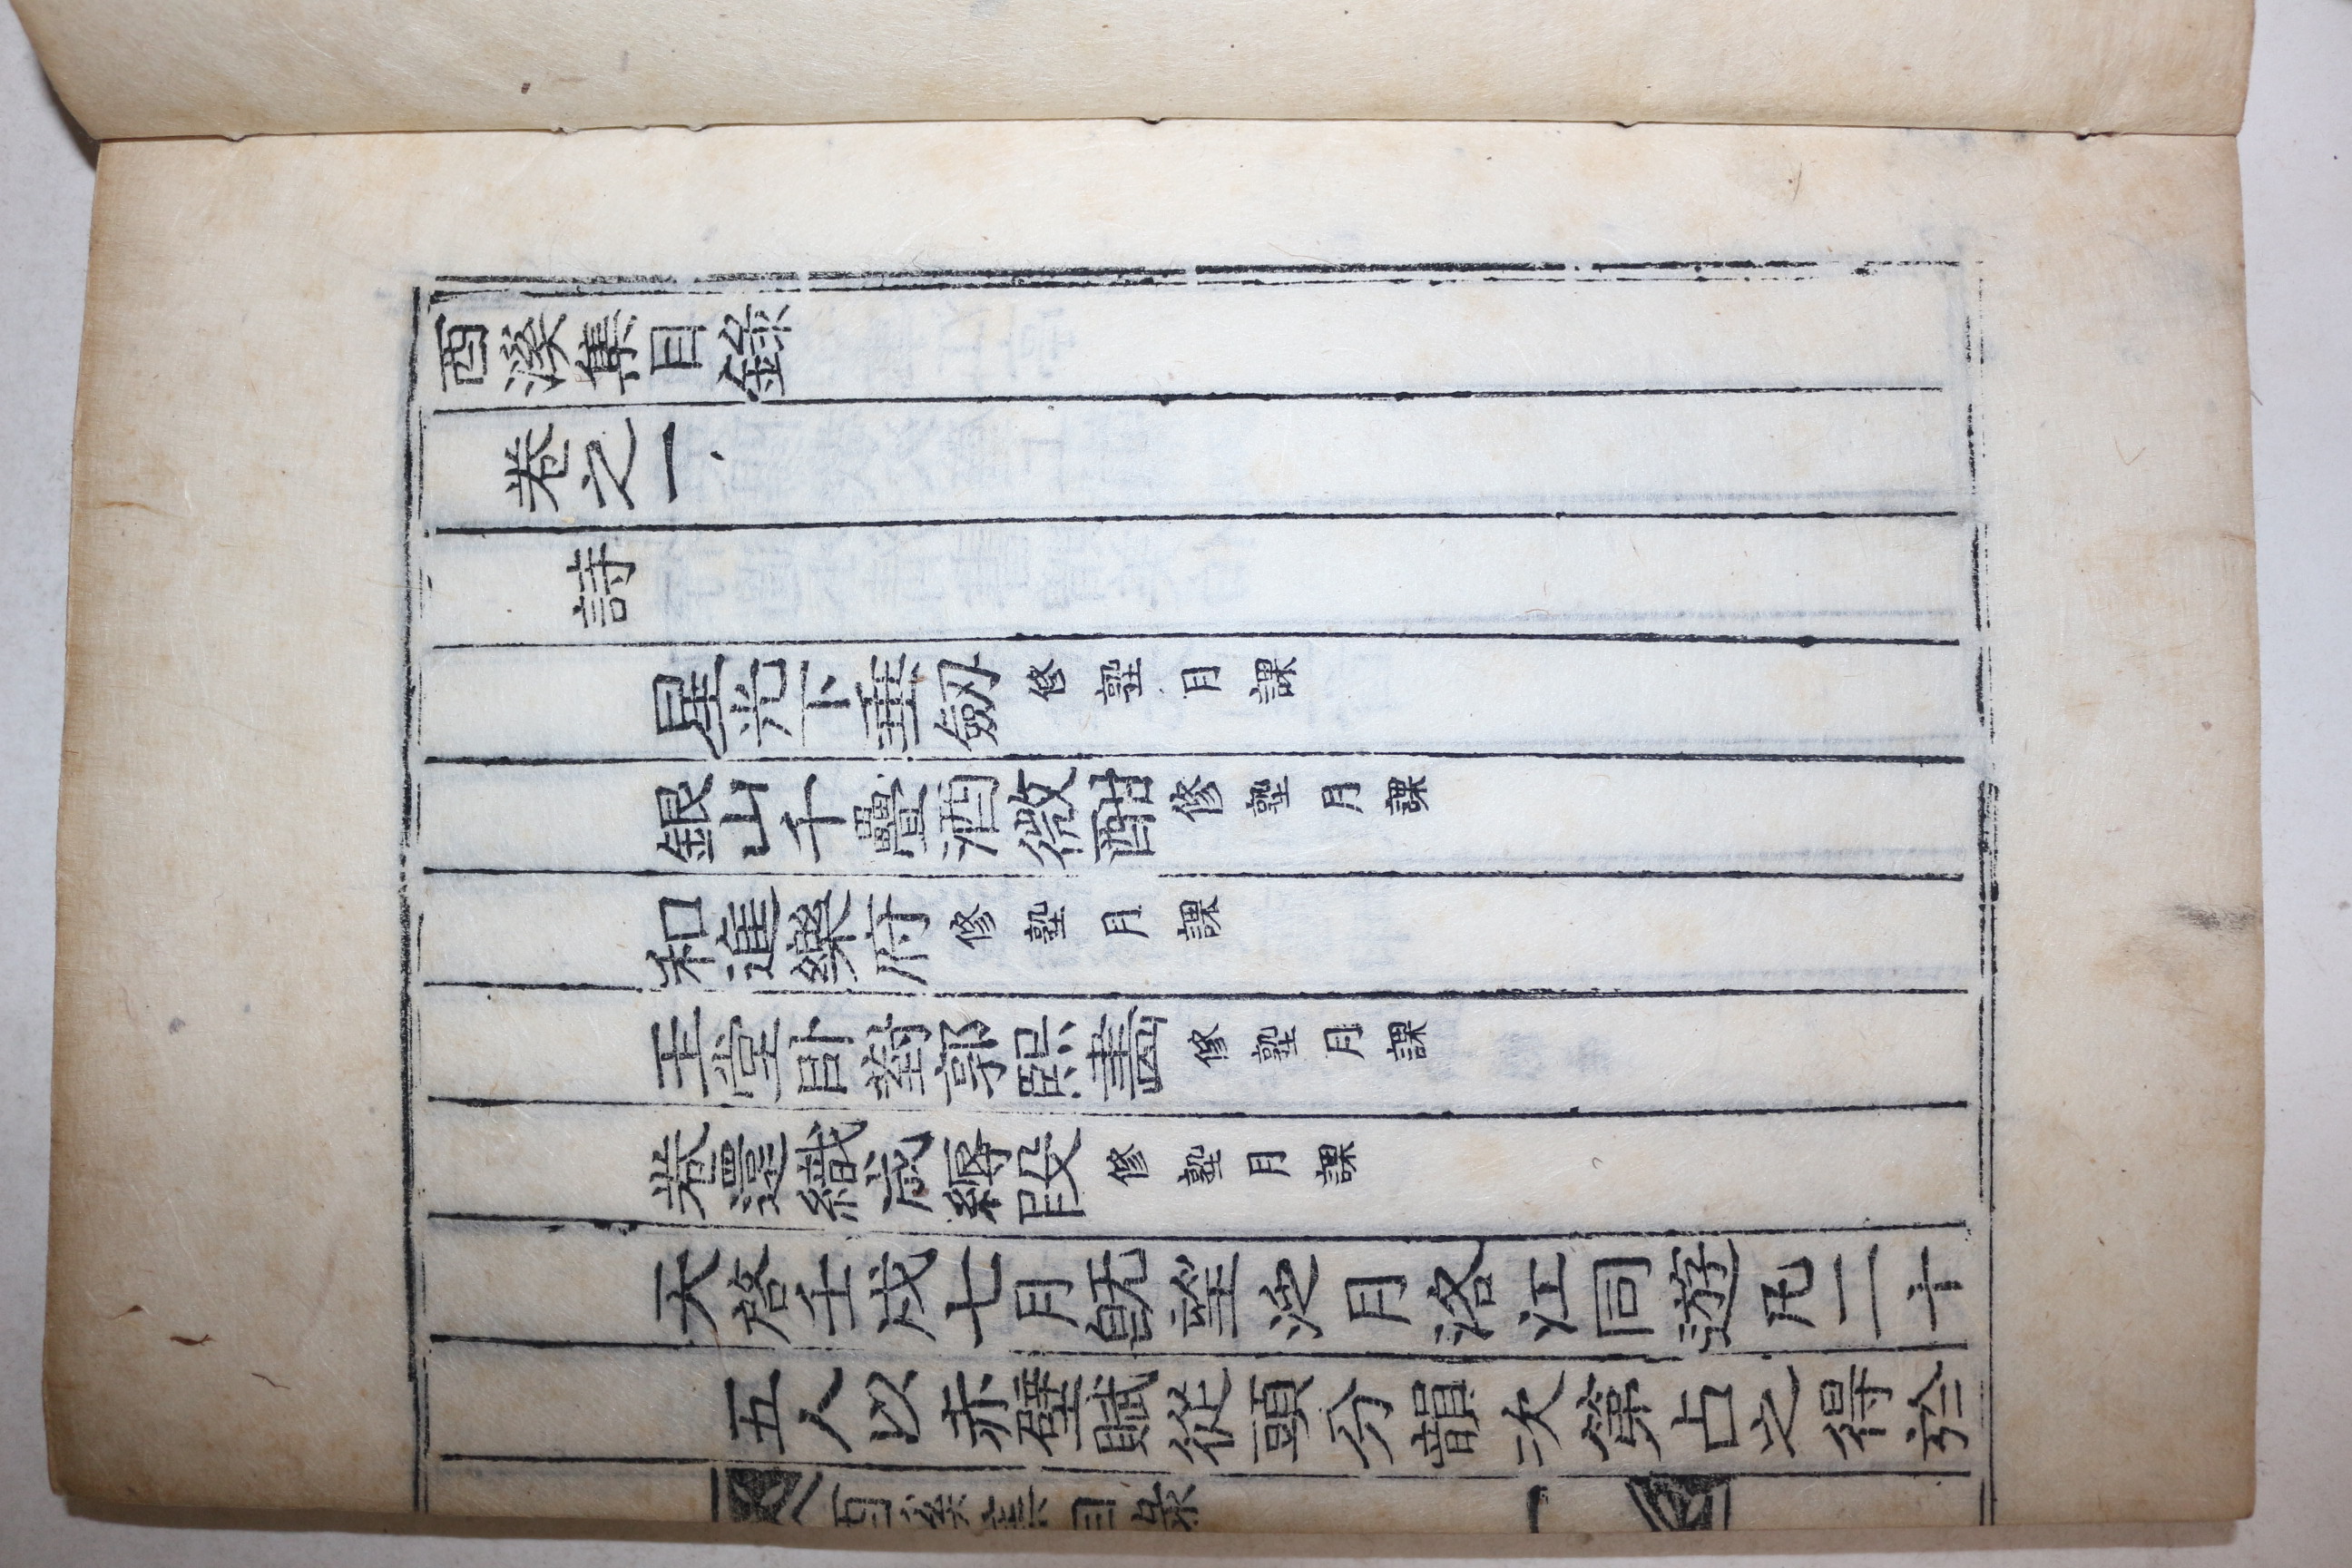 西溪集目錄
卷之一
詩
星光下垂劒 修塾月課
銀山千疊酒微酣 修塾月課
和進樂府 修塾月課
玉堂卧對郭熙畫 修塾月課
卷還織成縟段 修塾月課
天啓壬戌七月旣望泛月洛江同遊凡二十
五人以赤壁賦從頭分韻次第占之得於
西溪集目錄 一